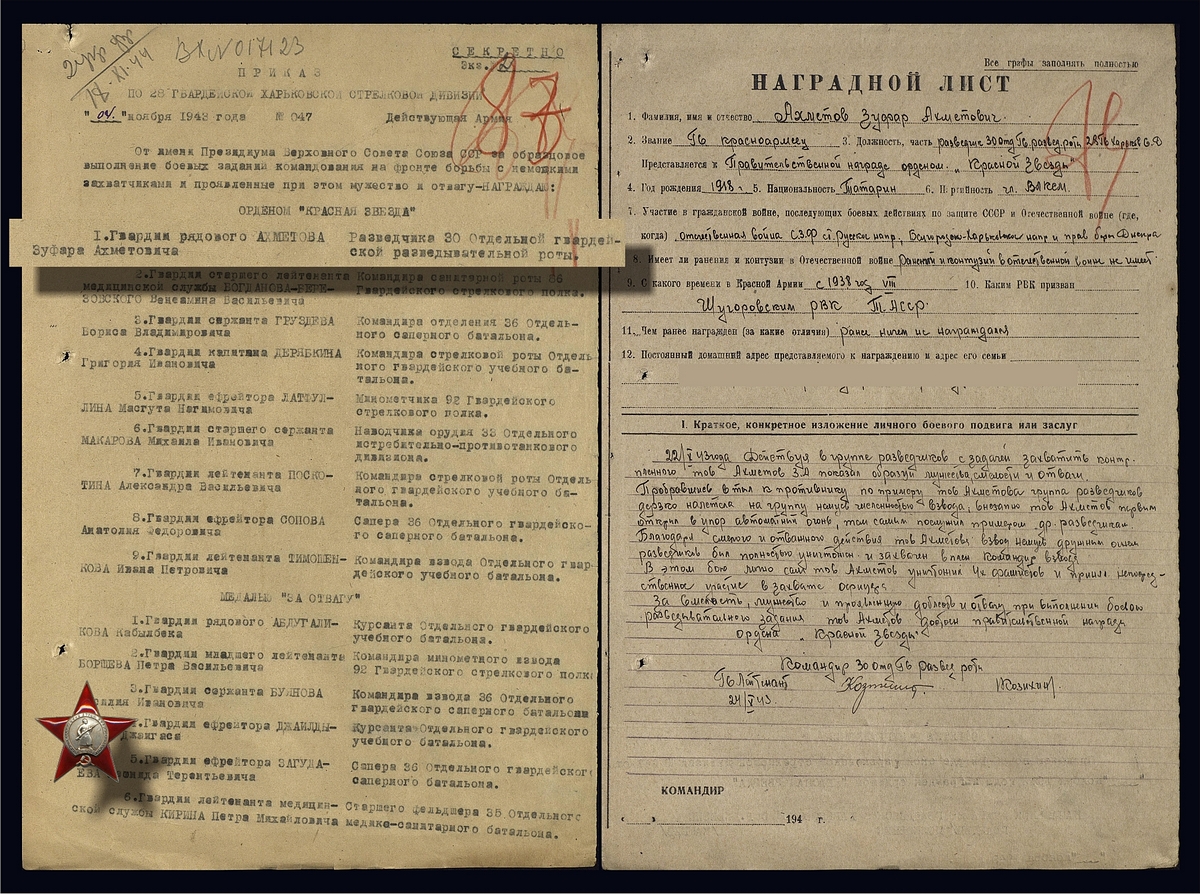 18 XI.44
ВХ№017123
СЕКРЕТНО
Экз. 2
ПРИКАЗ
ПО 28 ГВАРДЕЙСКОЙ ХАРЬКОВСКОЙ СТРЕЛКОВОЙ ДИВИЗИИ
"04" ноября 1943 года № 047 Действующая Армия
От имени Президиума Верховного Совета Союза ССР за образцовое
выполнение боевых заданий командования на фронте борьбы с немецкими
захватчиками и проявленные при этом мужество и отвагу-НАГРАЖДАЮ:
ОРДЕНОМ "КРАСНАЯ ЗВЕЗДА"
1.Гвардии рядового АХМЕТОВА Разведчика 30 Отдельной гвардей-
Зуфара Ахметовича ской разведывательной роты.
2.Гвардии старшего лейтенанта Командира санитарной роты 86
медицинской службы БОГДАНОВА-БЕРЕ- Гвардейского стрелкового полка.
ЗОВСКОГО Венеамина Васильевича
3.Гвардии сержанта ГРУЗДЕВА Командира отделения 36 Отдель-
Бориса Владимировича ного саперного батальона.
4.Гвардии капитана ДЕРЯБКИНА Командира стрелковой роты Отдель
Григория Ивановича ного гвардейского учебного ба-
тальона.
5.Гвардии ефрейтора ЛАТФУЛ- Минометчика 92 Гвардейского
ЛИНА Масгута Нагимовича стрелкового полка.
6.Гвардии старшего сержанта Наводчика орудия 33 Отдельного
МАКАРОВА Михаила Ивановича истребительно-противотанкового
дивизиона.
7.Гвардии лейтенанта ПОСКО- Командира стрелковой роты Отдель
ТИНА Александра Васильевича ного гвардейского учебного ба-
тальона.
8.Гвардии ефрейтора СОПОВА Сапера 36 Отдельного гвардейско-
Анатолия Федоровича го саперного батальона.
9.Гвардии лейтенанта ТИМОШЕН- Командира взвода Отдельного гвар-
КОВА Ивана Петровича дейского учебного батальона.
МЕДАЛЬЮ "ЗА ОТВАГУ"
1.Гвардии рядового АБДУГАЛИ- Курсанта Отдельного гвардейского
КОВА Кабылбека учебного батальона.
2.Гвардии младшего лейтенанта Командира минометного взвода
БОРЩЕВА Петра Васильевича 92 Гвардейского стрелкового полка
3.Гвардии сержанта БУЯНОВА Командира взвода 36 Отдельного
силия Ивановича гвардейского саперного батальона
.Гвардии ефрейтора ДЖАИЛДЫ- Курсанта Отдельного гвардейского
Джангаса учебного батальона.
5.Гвардии ефрейтора ЗАГУДА- Сапера 36 Отдельного гвардейског
ЕВА Терентьевича саперного батальона.
6.Гвардии лейтенанта медицин- Старшего фельдшера 35 Отдельного
ской службы КИРИНА Петра Михайловича медико-санитарного батальона.
Все графы заполнять полностью
НАГРАДНОЙ ЛИСТ
1. Фамилия, имя и отчество Ахметов Зуфар Ахметович.
2. Звание Гв красноармеец 3. Должность, часть разведчик 30 отд Гв. развед. роты 28 Гв Харьков С.Д
Представляется к Правительственной награде орденом. "Красной Звезды
4. Год рождения 1918 г. 5. Национальность Татарин 6. Партийность чл. ВЛКСМ.
7. Участие в гражданской войне, последующих боевых действиях по защите СССР и Отечественной войне (где,
когда) Отечественная война С.З.Ф ст. Русское напр., Белгородско-Харьковское напр и прав берег Днепра
8. Имеет ли ранения и контузии в Отечественной войне Ранений и контузий в отечественной войне не имеет
9. С какого времени в Красной Армии с 1938 год VIII 10. Каким РВК призван
Шугоровским РВК ТАССР.
11. Чем ранее награжден (за какие отличия) Ранее ничем не награждался
12. Постоянный домашний адрес представляемого к награждению и адрес его семьи
I. Краткое, конкретное изложение личного боевого подвига или заслуг
22/X 43 года Действуя в группе разведчиков с задачей захватить контр.
пленного тов Ахметов З.А показал образцы мужества, смелости и отваги.
Пробравшись в тыл к противнику по примеру тов Ахметова группа разведчиков
дерзко налетела на группу немцев численностью взвода, внезапно тов Ахметов первым
открыл в упор автоматный огонь, тем самым послужил примером др. разведчикам.
Благодаря смелого и отважного действия тов Ахметова взвод немцев дружным огнем
разведчиков был полностью уничтожен и захвачен в плен командир взвода
В этом бою лично сам тов Ахметов уничтожил 4х фашистов и принял непосред-
ственное участие в захвате офицера
За смелость, мужество и проявленную доблесть и отвагу при выполнении боевого
разведывательного задания тов Ахметов достоин правительственной награды
Ордена "Красной Звезды"
Командир 30 отд Гв развед роты
Гв Лейтенант
24/X 43.
КОМАНДИР
" " 194 г.